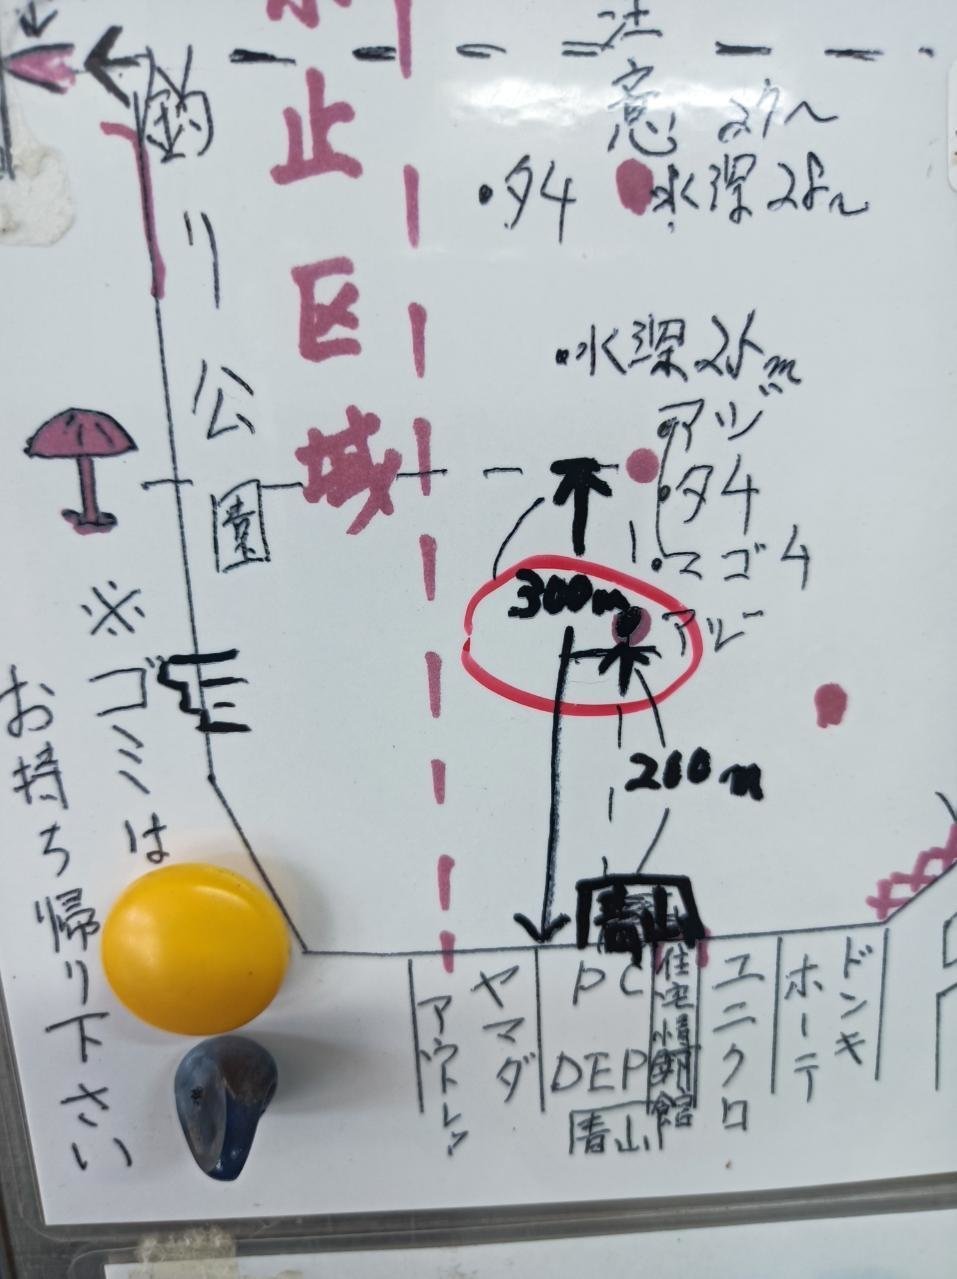 止区域
釣り公園
注意
・タイ
水深28m
・水深25m
アジ
・タイ
・マゴチ
300m
アジ
200m
※ゴミは
お持ち帰り下さい
青山
アウトレット
ヤマダ
PC
DEP
青山
住宅情報館
ユニクロ
ホーテ
ドンキ